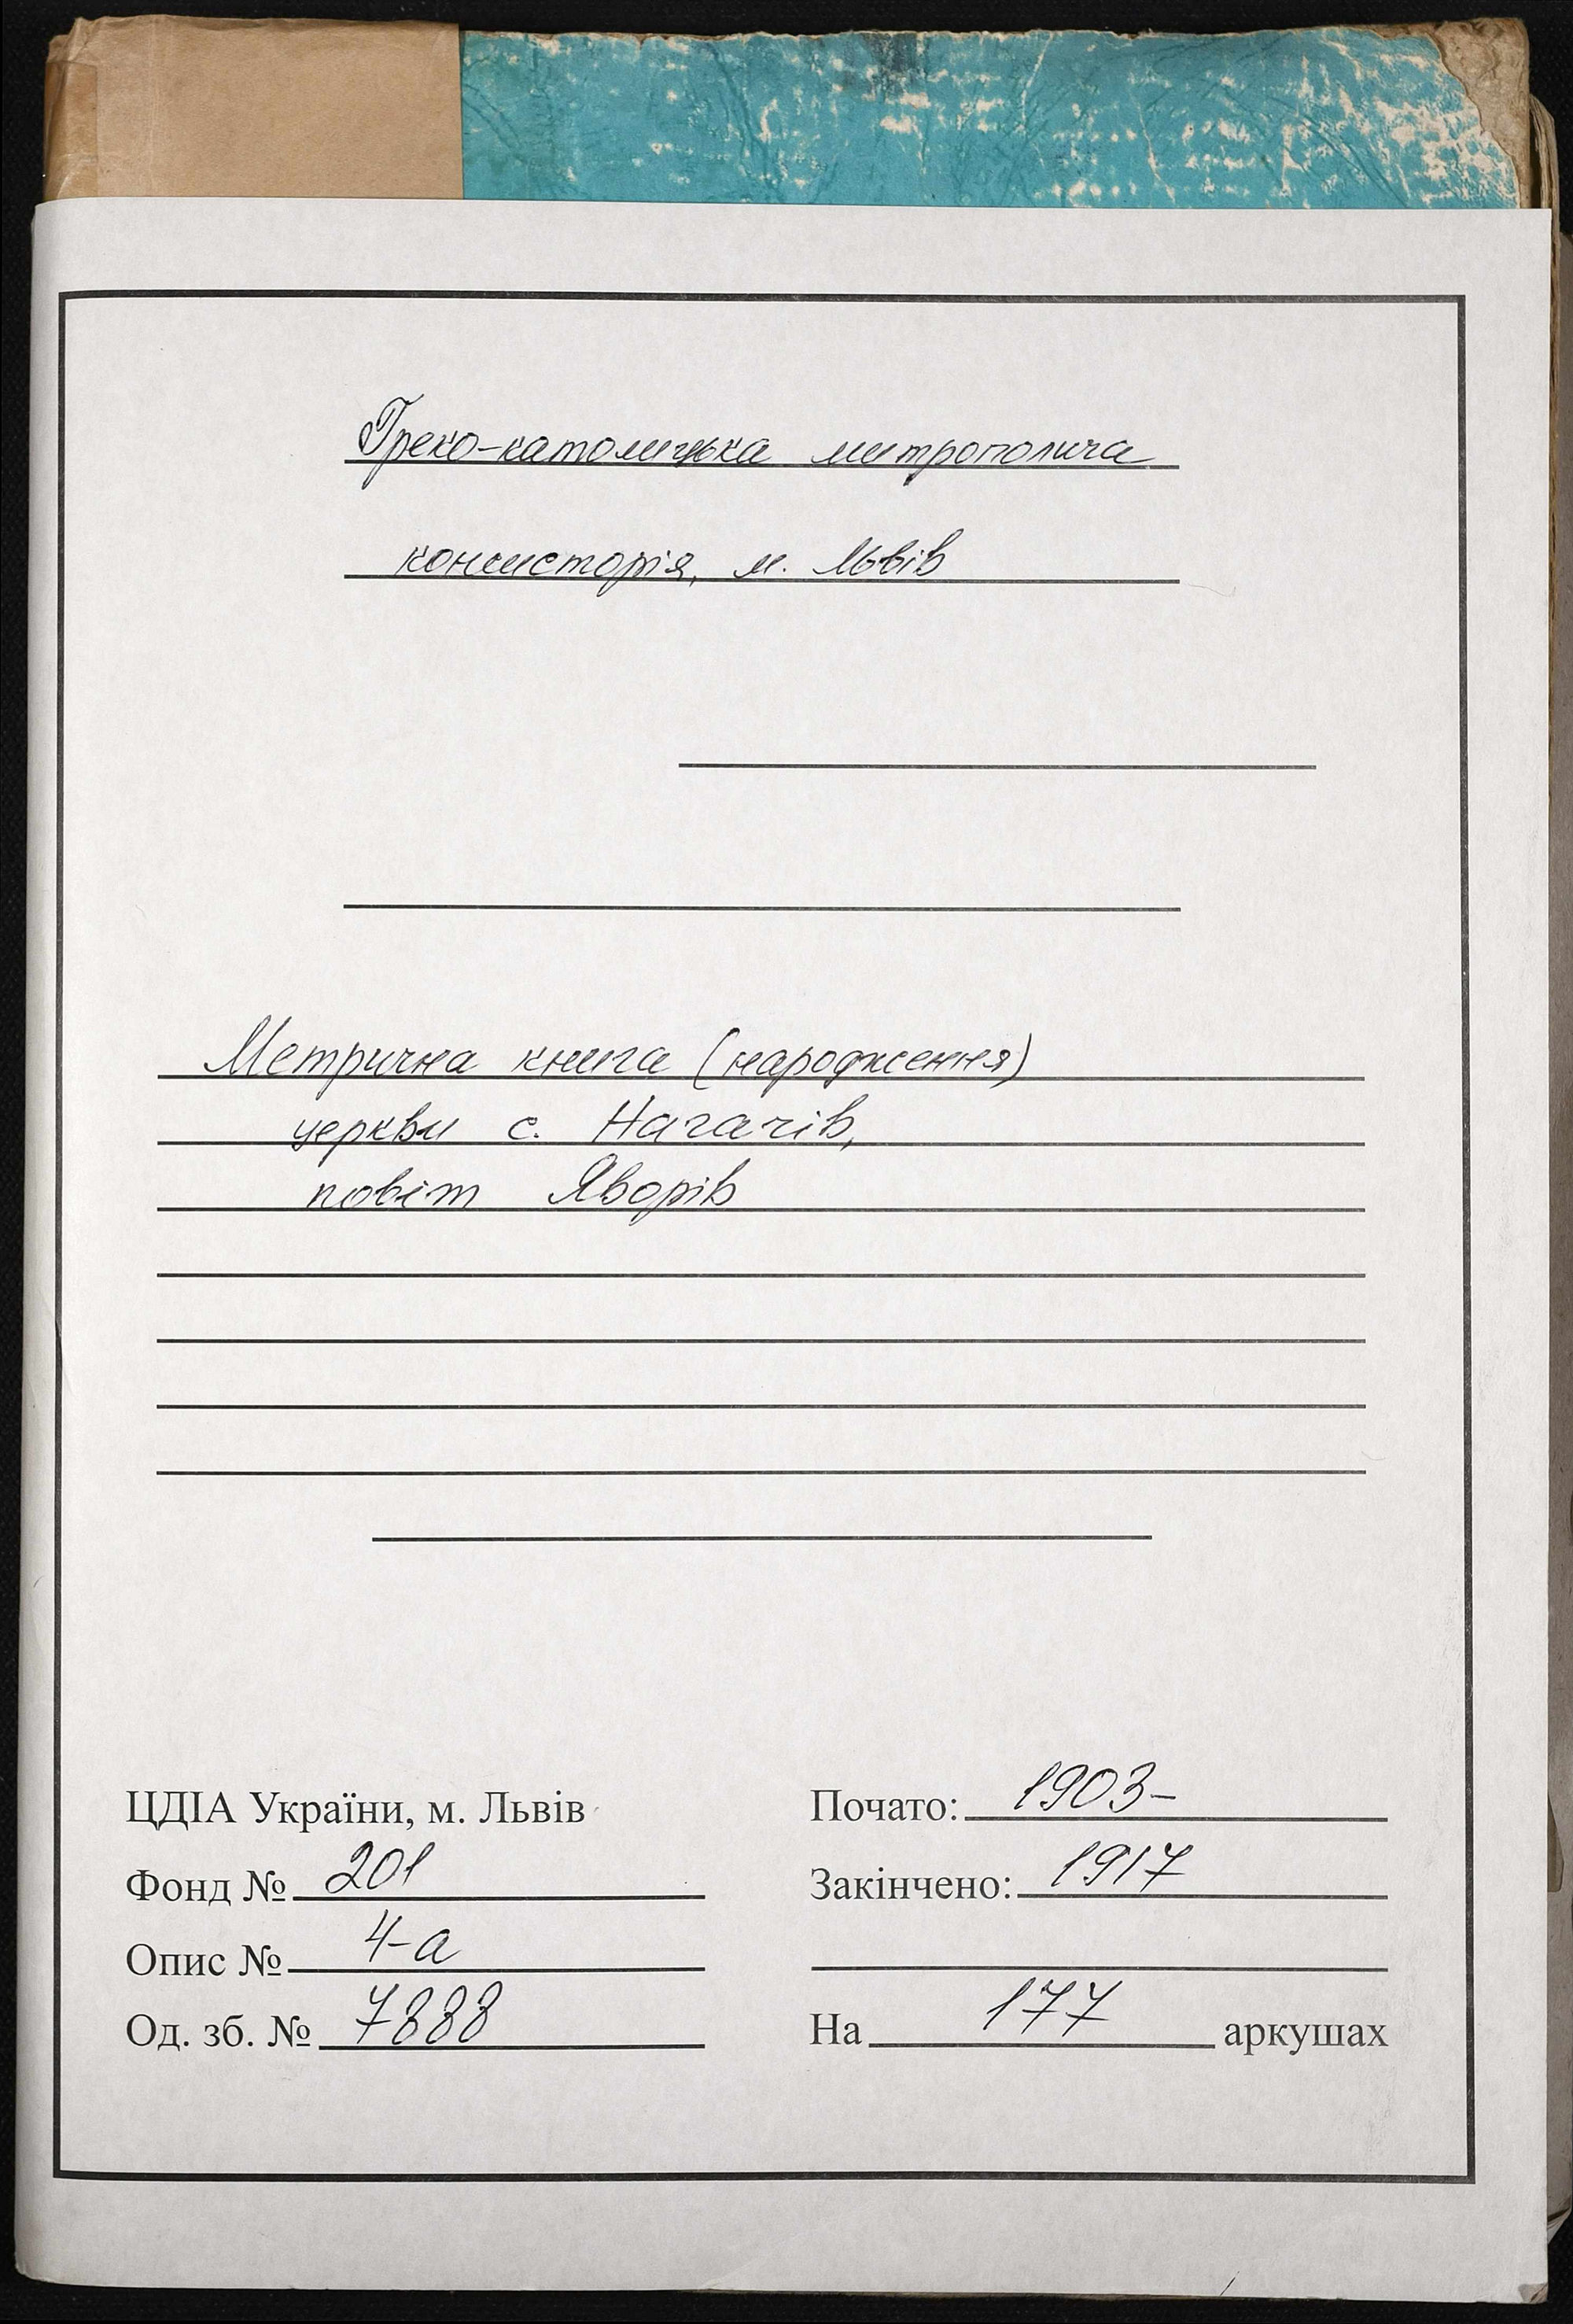 Греко-католицька митрополича
консисторія, м. Львів
Метрична книга (народження)
церкви с. Нагачів,
повіт Яворів
ЦДІА України, м. Львів
Фонд № 201
Опис № 4-а
Од. зб. № 7888
Почато: 1903-
Закінчено: 1917
На 177 аркушах